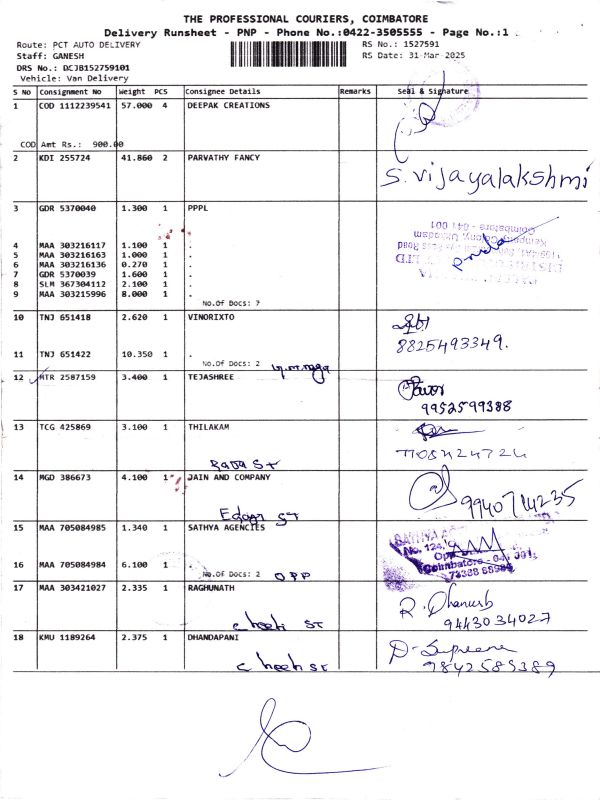 THE PROFESSIONAL COURIERS, COIMBATORE
Delivery Runsheet - PNP - Phone No.:0422-3505555 - Page No.:1
Route: PCT AUTO DELIVERY
RS No.: 1527591
Staff: GANESH
RS Date: 31-Mar-2025
DRS No.: DCJB152759101
Vehicle: Van Delivery
S No Consignment No Weight PCS Consignee Details Remarks Seal & Signature
1 COD 1112239541 57.000 4 DEEPAK CREATIONS
COD Amt Rs.: 900.00
2 KDI 255724 41.860 2 PARVATHY FANCY
S. Vijayalakshmi
3 GDR 5370040 1.300 1 PPPL
4 MAA 303216117 1.100 1 .
5 MAA 303216163 1.000 1 .
6 MAA 303216136 0.270 1 .
7 GDR 5370039 1.600 1 .
8 SLM 367304112 2.100 1 .
9 MAA 303215996 8.000 1 .
No.Of Docs: 7
Coimbatore - 641 001
10 TNJ 651418 2.620 1 VINORIXTO
8825493349.
11 TNJ 651422 10.350 1 .
No.Of Docs: 2
12 MTR 2587159 3.400 1 TEJASHREE
9952599388
13 TCG 425869 3.100 1 THILAKAM
14 MGD 386673 4.100 1 JAIN AND COMPANY
9940714235
15 MAA 705084985 1.340 1 SATHYA AGENCIES
16 MAA 705084984 6.100 1 .
No.Of Docs: 2 OPP
No. 124,
Coimbatore
17 MAA 303421027 2.335 1 RAGHUNATH
R. Dhanush
9443034027
18 KMU 1189264 2.375 1 DHANDAPANI
9842585389